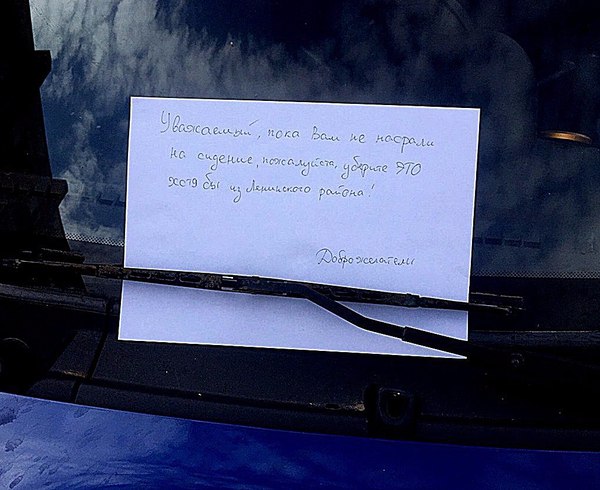 Уважаемый, пока Вам не насрали
на сидение, пожалуйста, уберите ЭТО
хотя бы из Ленинского района!
Доброжелатели